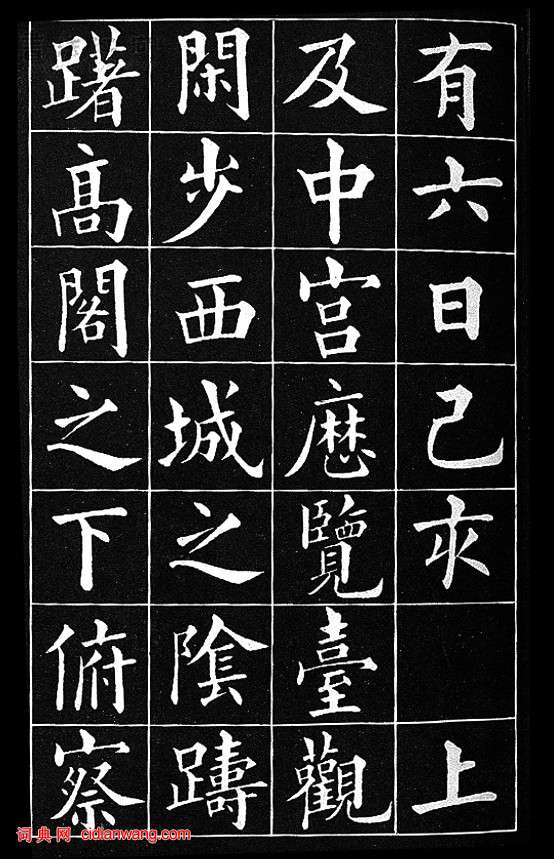 有六日己亥 上
及中宫歷覽臺觀
閑步西城之陰躊
躇髙閣之下俯察
词典网 cidianwang.com